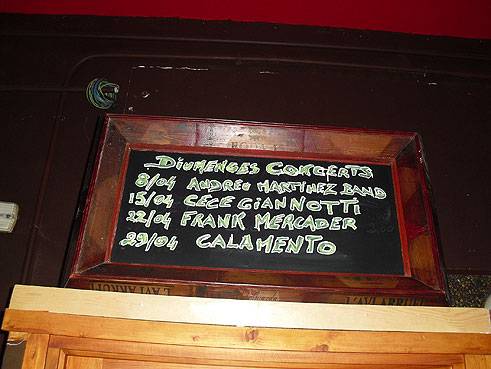 DIUMENGES CONCERTS
8/04 ANDREU MARTINEZ BAND
15/04 CECE GIANNOTTI
22/04 FRANK MERCADER
29/04 CALAMENTO